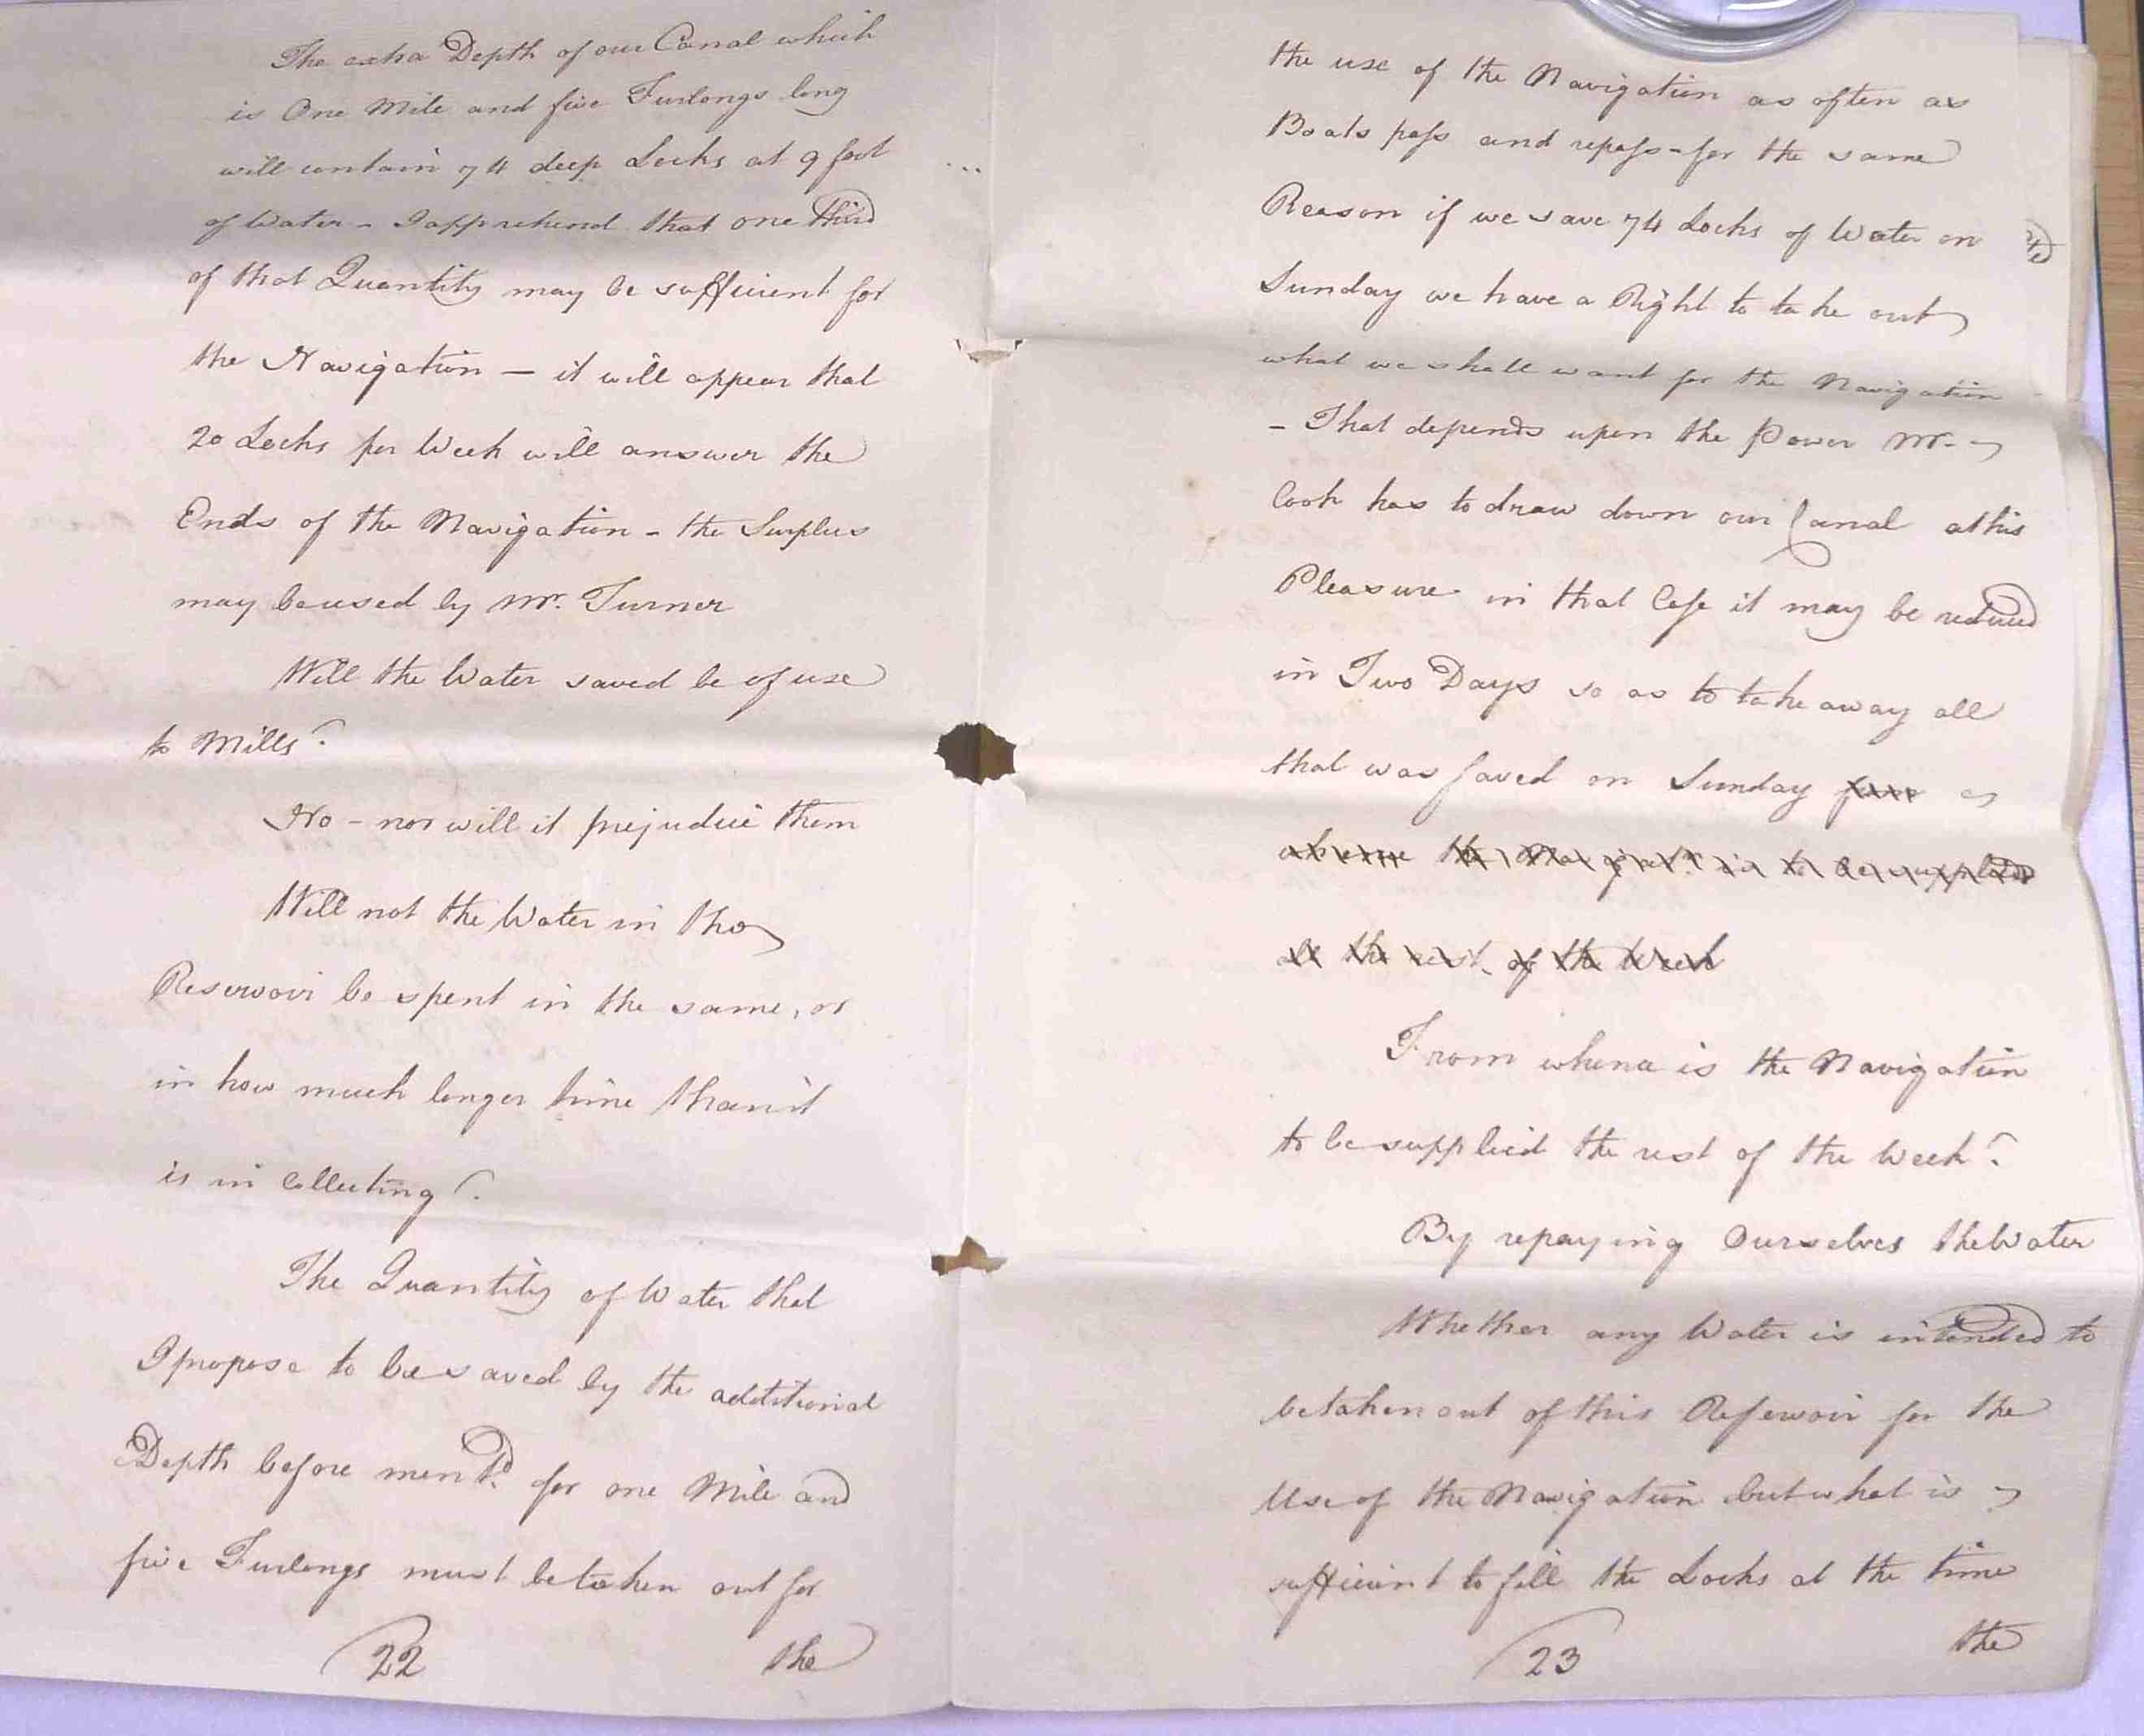 The extra Depth of our Canal which
is One Mile and five Furlongs long
will contain 74 deep Locks at 9 foot
of Water - I apprehend that one third
of that Quantity may be sufficient for
the Navigation — it will appear that
20 Locks per Week will answer the
Ends of the Navigation - the Surplus
may be used by Mr. Turner
Will the Water saved be of use
to Mills?
No - nor will it prejudice them
Will not the Water in the
Reservoir be spent in the same, or
in how much longer time than it
is in Collecting?
The Quantity of Water that
I propose to be saved by the additional
Depth before mentd. for one Mile and
five Furlongs must be taken out for
22 the
the use of the Navigation as often as
Boats pass and repass - for the same
Reason if we save 74 Locks of Water on
Sunday we have a Right to take out
what we shall want for the Navigation
- That depends upon the Power Mr.
Cook has to draw down our Canal at his
Pleasure in that Case it may be reduced
in Two Days so as to take away all
that was saved on Sunday
the Navigatn. is to be supplied
all the rest of the Week
From whence is the Navigation
to be supplied the rest of the Week?
By repaying Ourselves the Water
Whether any Water is intended to
be taken out of this Reservoir for the
Use of the Navigation but what is
sufficient to fill the Locks at the time
23 the